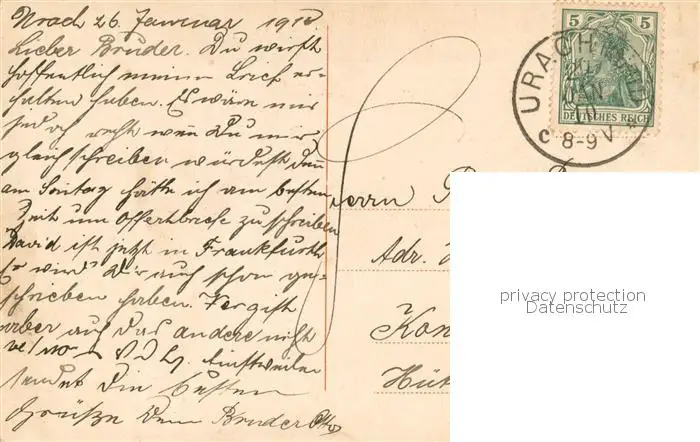 Urach 26 Januar 1910
Lieber Bruder. Du wirst
hoffentlich meinen Brief er-
halten haben. Es wäre mir
jedoch recht wenn Du mir
gleich schreiben würdest denn
am Sontag hätte ich am besten
Zeit um Offertbriefe zu schreiben
David ist jetzt in Frankfurth
Er wird Dir auch schon ge-
schrieben haben. Vergiss
aber auf das andere nicht
Einstweilen
sendet Dir die besten
Grüße Dein Bruder Otto
5 5
DEUTSCHES REICH
URACH
26
JAN
10
C 8-9 V
Herrn
Adr.
Kon
Hüt
privacy protection
Datenschutz